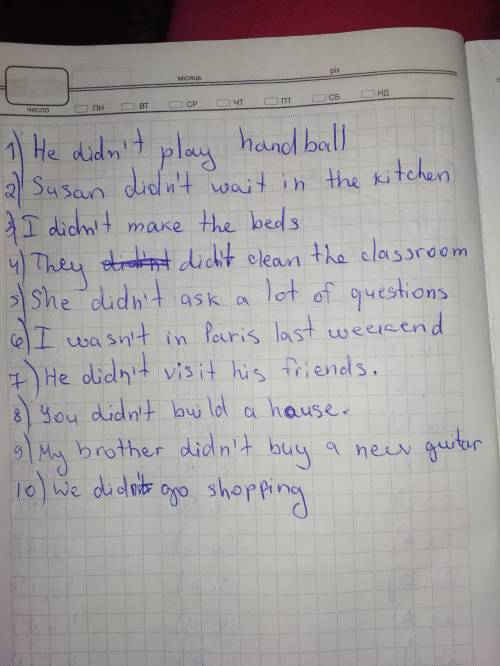 місяць рік
число ПН ВТ СР ЧТ ПТ СБ НД
1) He didn't play handball
2) Susan didn't wait in the kitchen
3) I didn't make the beds
4) They didn't didn't clean the classroom
5) She didn't ask a lot of questions
6) I wasn't in Paris last weekend
7) He didn't visit his friends.
8) You didn't build a house.
9) My brother didn't buy a new guitar
10) We didn't go shopping